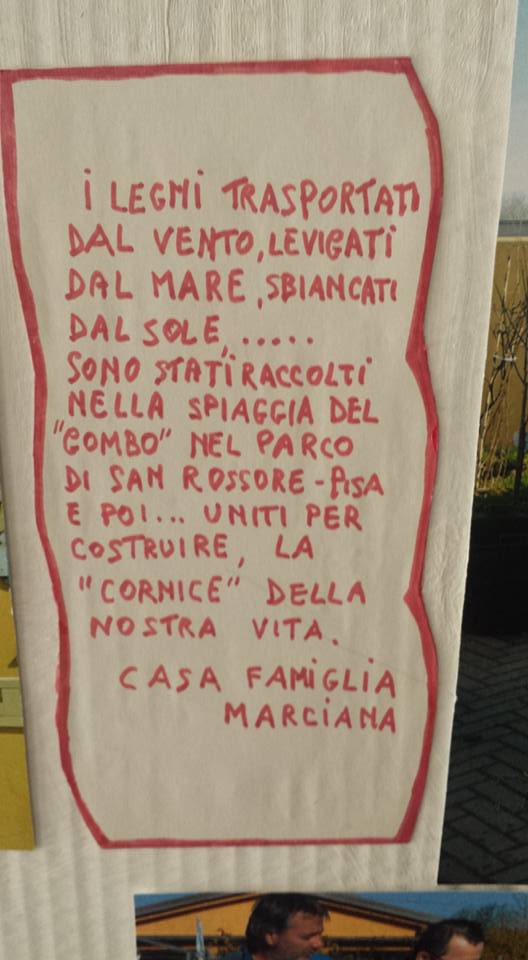 i LEGNi TRASPORTATi
DAL VENTO, LEVIGATi
DAL MARE, SBIANCATI
DAL SOLE, .....
SONO STATI RACCOLTI
NELLA SPIAGGIA DEL
"GOMBO" NEL PARCO
DI SAN ROSSORE - PISA
E POI... UNITI PER
COSTRUIRE, LA
"CORNICE" DELLA
NOSTRA VITA.
CASA FAMiGLIA
MARCiANA